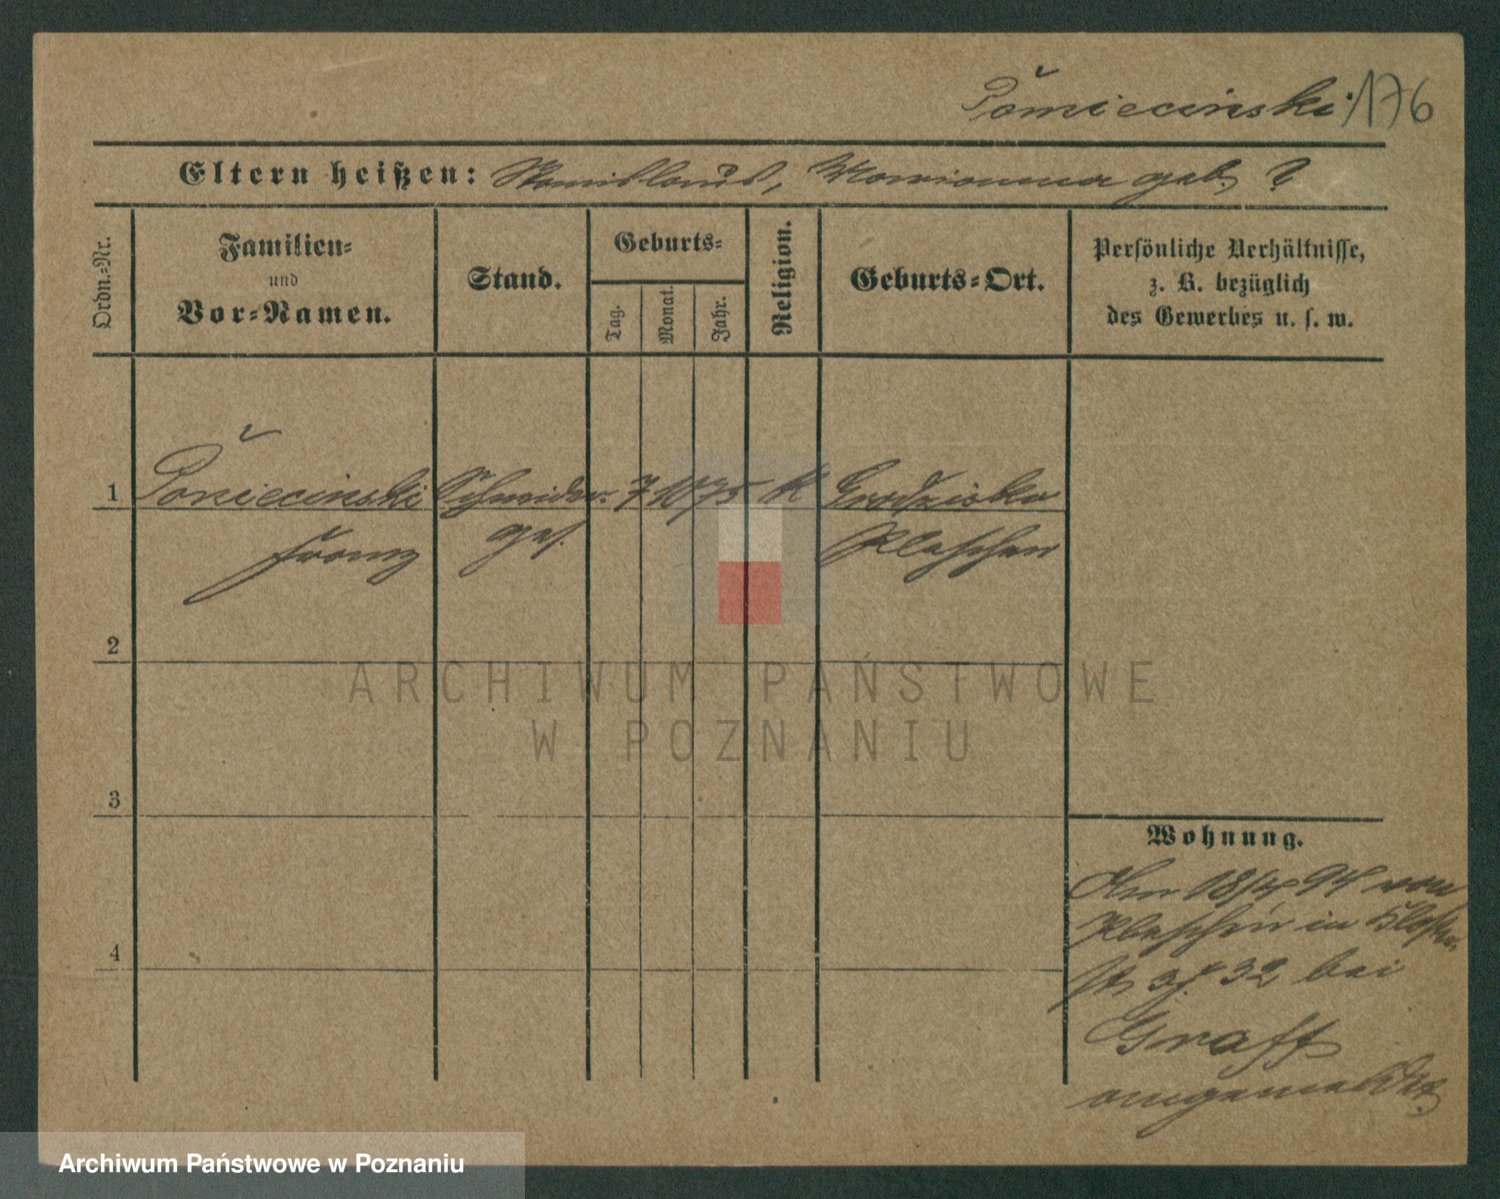 Pomiecinski 176
Eltern heißen: Stanislaus, Marianna geb. ?
Ordn.-Nr.
Familien-
und
Vor-Namen.
Stand.
Geburts-
Tag.
Monat.
Jahr.
Religion.
Geburts-Ort.
Persönliche Verhältnisse,
z. B. bezüglich
des Gewerbes u. s. w.
1 Franz
Schneider- 7 10 75 K Grodzisko
ges. Pleschen
2
3
4
Wohnung.
Am 18/4 94 von
Pleschen in
32 bei
Graff
angemeldet.
ARCHIWUM PAŃSTWOWE
W POZNANIU
Archiwum Państwowe w Poznaniu